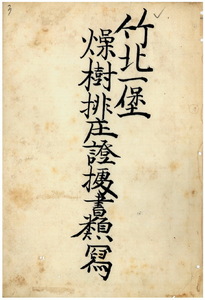 竹北一堡
燥樹排庄證擾書類寫